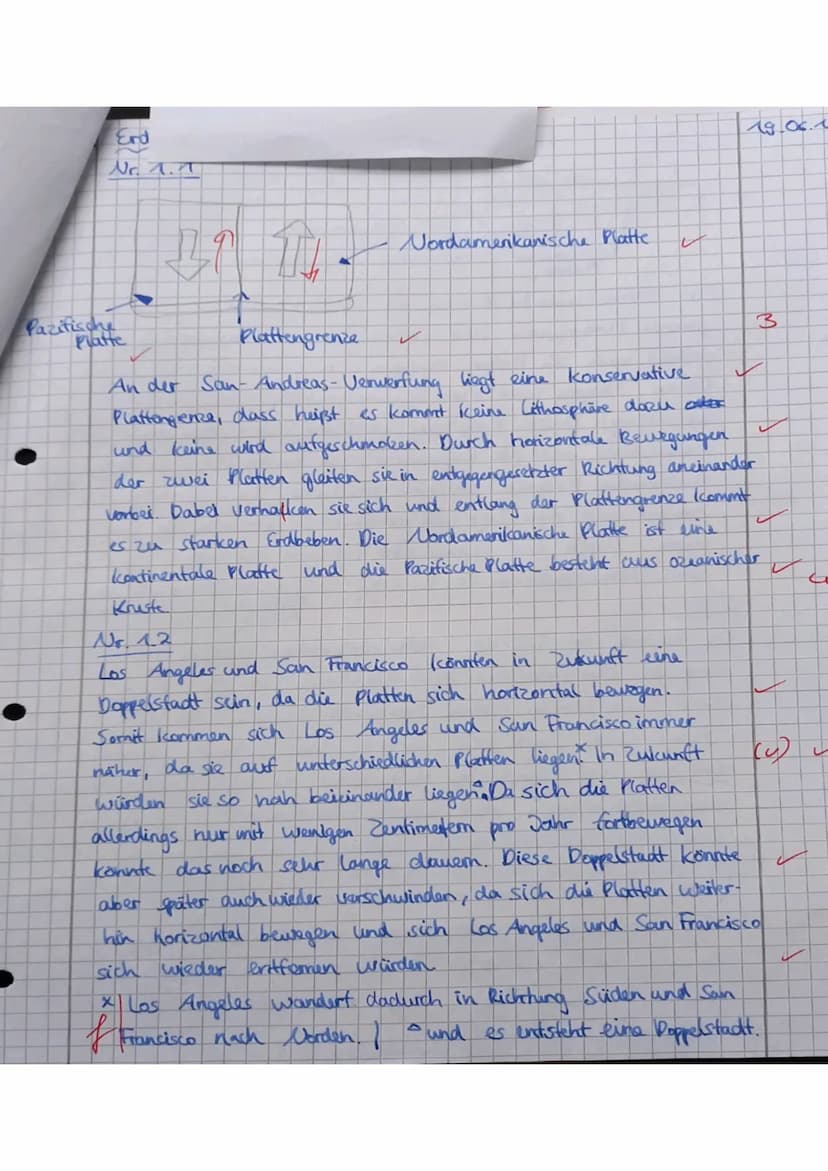 Erd
19.06.1
Nr. 1.1
Nordamerikanische Platte
Pazifische
Platte
Plattengrenze
3
An der San-Andreas-Verwerfung liegt eine konservative
Plattengenze, dass heißt es kommt keine Lithosphäre dazu
und keine wird aufgeschmolzen. Durch horizontale Bewegungen
der zwei Platten gleiten sie in entgegengesetzter Richtung aneinander
vorbei. Dabei verhaken sie sich und entlang der Plattengrenze kommt
es zu starken Erdbeben. Die Nordamerikanische Platte ist eine
kontinentale Platte und die Pazifische Platte besteht aus ozeanischer
Kruste
Nr. 1.2
Los Angeles und San Francisco könnten in Zukunft eine
Doppelstadt sein, da die Platten sich horizontal bewegen.
Somit kommen sich Los Angeles und San Francisco immer
näher, da sie auf unterschiedlichen Platten liegen.x In Zukunft (4)
würden sie so nah beieinander liegen△. Da sich die Platten
allerdings nur mit wenigen Zentimetern pro Jahr fortbewegen
könnte das noch sehr lange dauern. Diese Doppelstadt könnte
aber später auch wieder verschwinden, da sich die Platten weiter-
hin horizontal bewegen und sich Los Angeles und San Francisco
sich wieder entfernen würden
x| Los Angeles wandert dadurch in Richtung Süden und San
f Francisco nach Norden. | △ und es entsteht eine Doppelstadt.